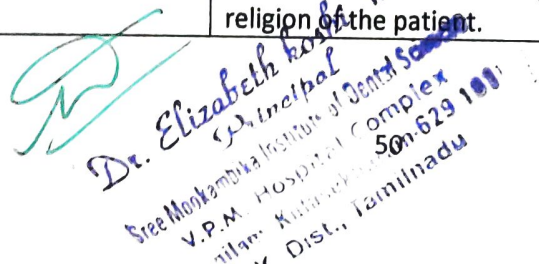 religion of the patient.
Dr. Elizabeth Koshi
Principal
Sree Mookambika Institute of Dental
V.P.M. Hospital Complex
50
629
Dist., Tamilnadu